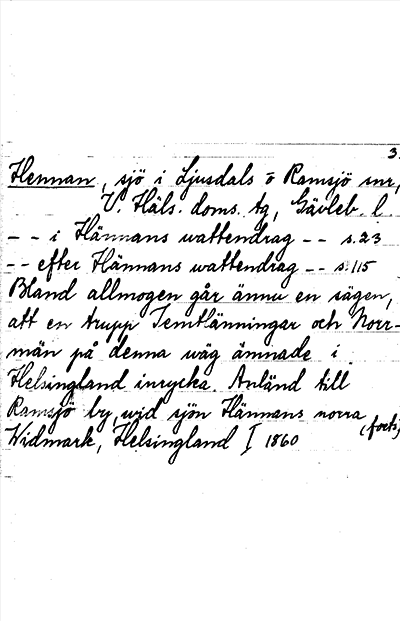 3.
Hennan, sjö i Ljusdals o Ramsjö snr,
V. Häls. doms. tg, Gävleb. l
-- i Hännans wattendrag -- s. 23
-- efter Hännans wattendrag -- s. 115
Bland allmogen går ännu en sägen,
att en trupp Jemtlänningar och Norr-
män på denna wäg ämnade i
Helsingland inrycka. Anländ till
Ramsjö by wid sjön Hännans norra
(forts)
Widmark, Helsingland I 1860